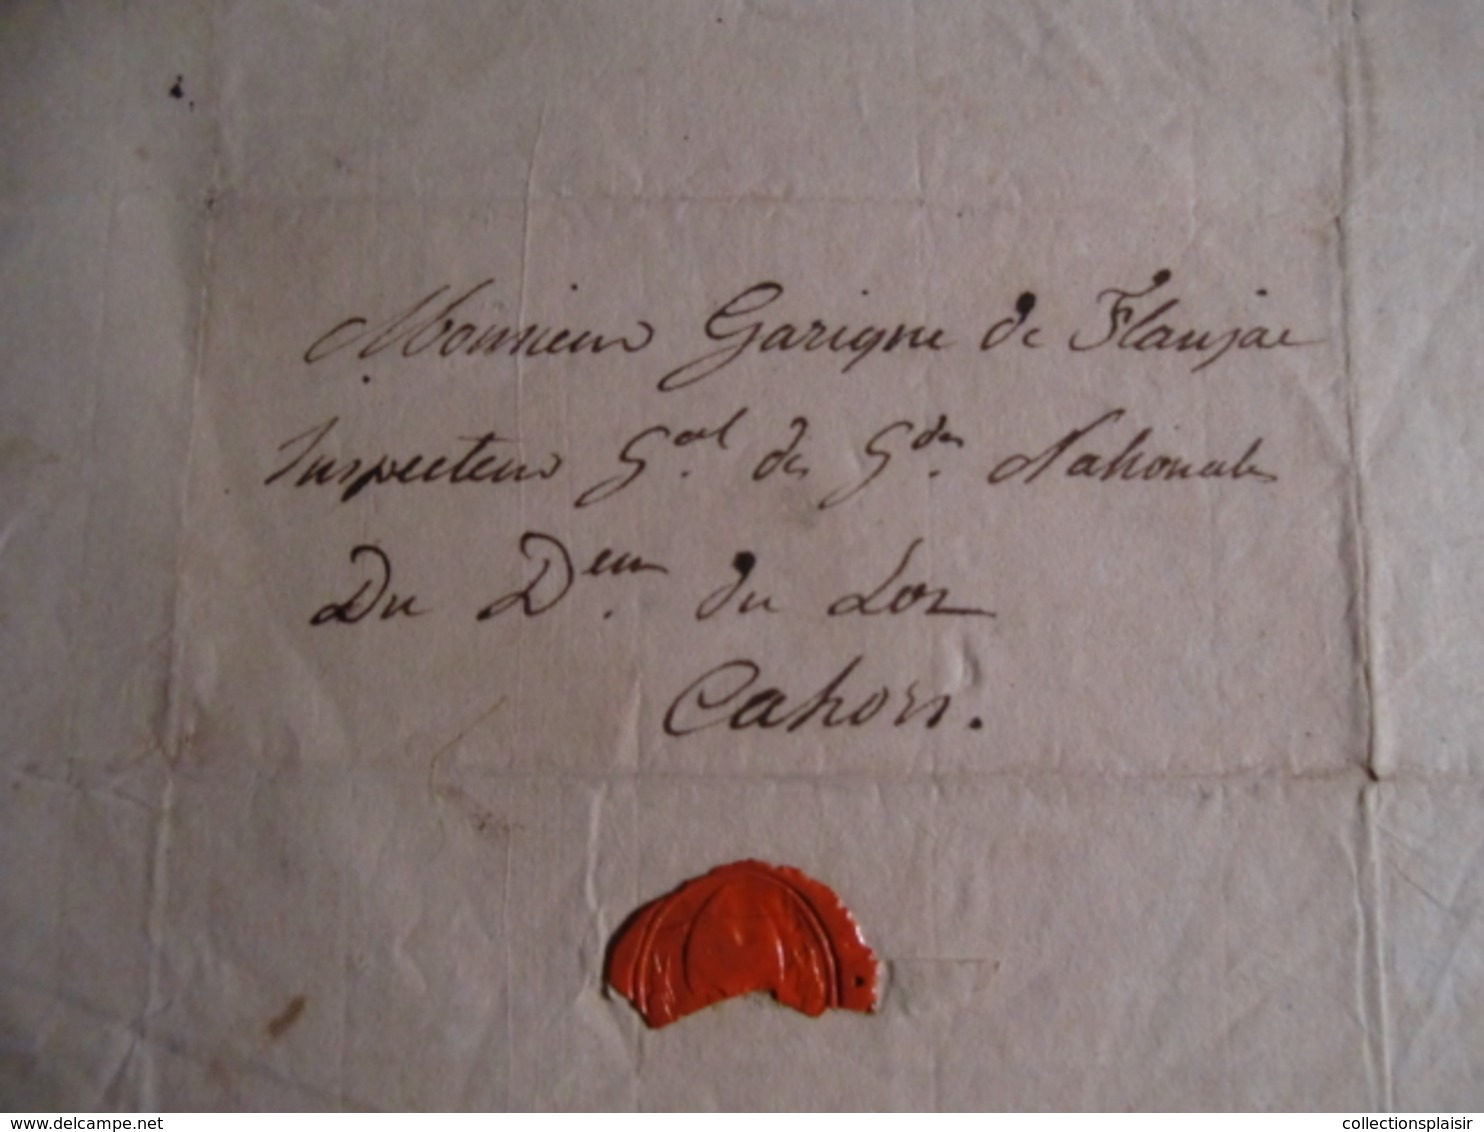 Monsieur Garigne de Flaujac
Inspecteur G.al des G.des Nationales
Du D.em du Lot
Cahors.
delcampe.net
collectionsplaisir